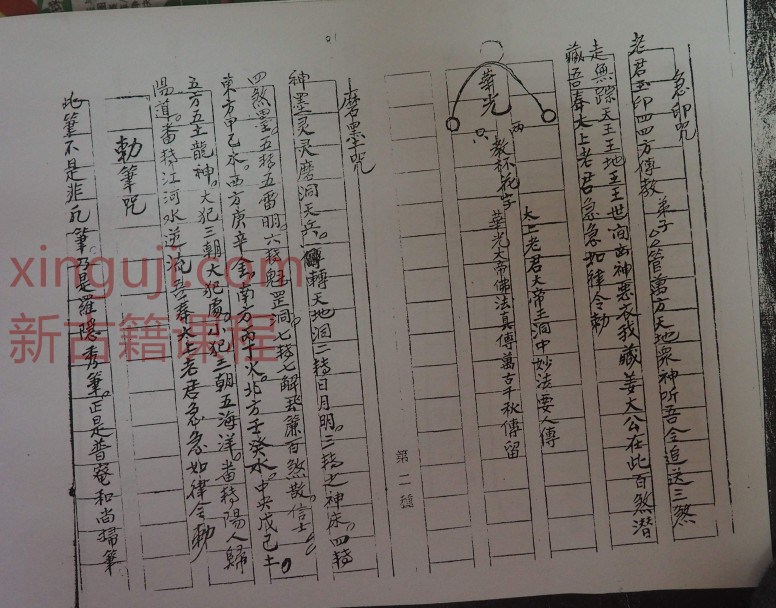 急印咒
老君玉印四四方傳教 弟子 管萬方天地眾神听吾令追送三煞
走無踪天王王地王王世间凶神惡衣我藏姜太公在此百煞潜
藏吾奉太上老君急急如律令勅
華光
两
只
太上老君大帝王洞中妙法要人傳
教杯花字 華光大帝佛法真傳萬古千秋傳留
第二種
磨墨咒
神墨灵灵磨洞天兵 轉天地洞二轉日月明三轉 神床四轉
四煞墨五轉五雷明六轉魁罡洞七轉七解珠簾百煞散信士
東方甲乙水西方庚辛金南方丙丁火北方壬癸水中央戊己土
五方五土龍神大犯三朝大犯處小犯三朝五海洋畨轉陽人歸
陽道畨轉江河水逆流吾奉太上老君急急如律令勅
勅筆咒
此筆不是非凡筆乃是羅隱秀筆正是普奄和尚掃筆
xinguji.com
新古籍课程